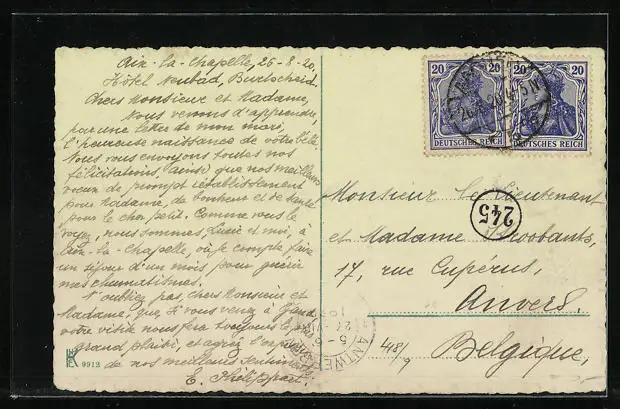 Aix-la-Chapelle, 26-8-20.
Hôtel Neubad, Burtscheid.
Chers Monsieur et Madame,
Nous venons d'apprendre,
par une lettre de mon mari,
l'heureuse naissance de votre bébé.
Nous vous envoyons toutes nos
félicitations ainsi que nos meilleurs
vœux de prompt rétablissement
pour Madame, de bonheur et de santé
pour le cher petit. Comme vous le
voyez, nous sommes, et moi, à
Aix-la-Chapelle, où je compte faire
un séjour d'un mois, pour guérir
mes rhumatismes.
N'oubliez pas, chers Monsieur et
Madame, que, si vous venez à Gand,
votre visite nous fera toujours le plus
grand plaisir, et agréez l'expression
de nos meilleurs sentiments.
E.
9912
20 20 20 20
DEUTSCHES REICH DEUTSCHES REICH
245
Monsieur le Lieutenant
et Madame
17, rue Cupérus,
Anvers.
Belgique.
418/9
ANTWERPEN